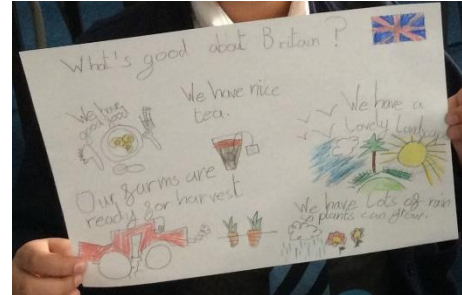 What's good about Britain?
We have
good food
We have nice
tea.
We have a
Lovely Landscape
Our farms are
ready for harvest
We have Lots of rain
plants can grow.